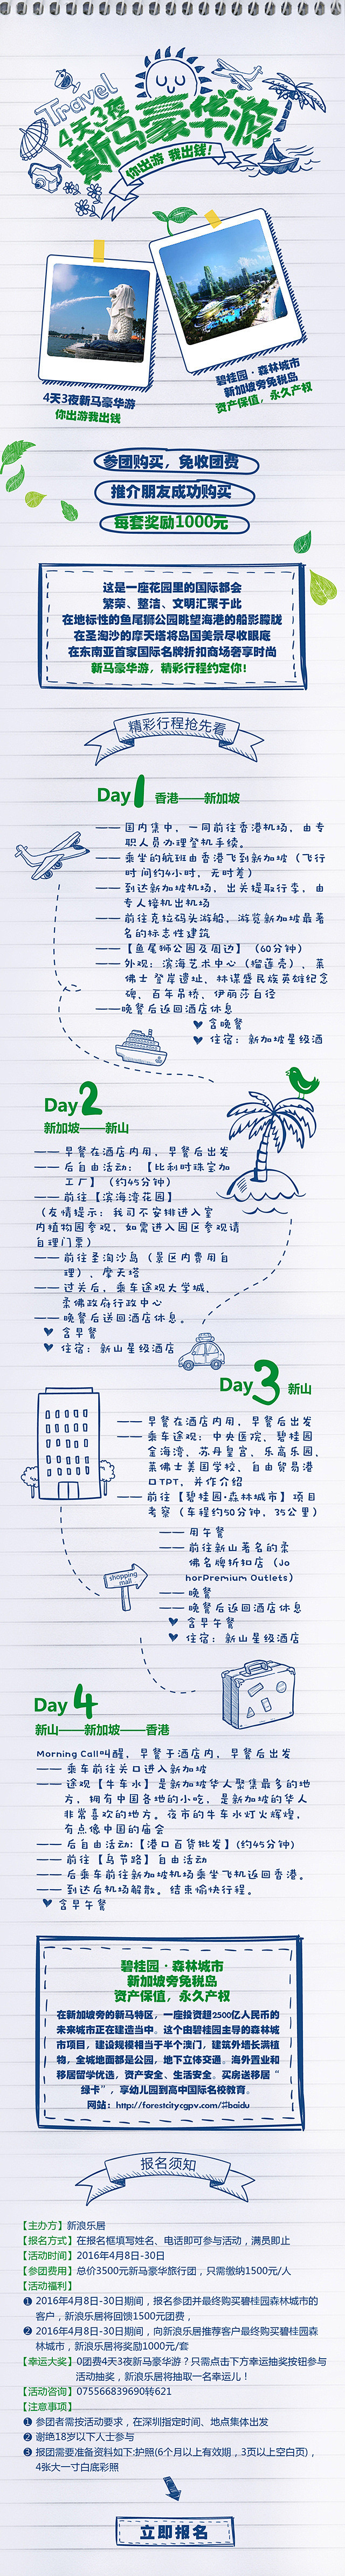 Travel
4天3夜
新马豪华游
你出游 我出钱！
4天3夜新马豪华游
你出游我出钱
碧桂园·森林城市
新加坡旁免税岛
资产保值，永久产权
参团购买，免收团费
推介朋友成功购买
每套奖励1000元
这是一座花园里的国际都会
繁荣、整洁、文明汇聚于此
在地标性的鱼尾狮公园眺望海港的船影朦胧
在圣淘沙的摩天塔将岛国美景尽收眼底
在东南亚首家国际名牌折扣商场奢享时尚
新马豪华游，精彩行程约定你！
精彩行程抢先看
Day1 香港——新加坡
——国内集中，一同前往香港机场，由专
职人员办理登机手续。
——乘坐的航班由香港飞到新加坡（飞行
时间约4小时，无时差）
——到达新加坡机场，出关提取行李，由
专人接机出机场
——前往克拉码头游船，游览新加坡最著
名的标志性建筑
——【鱼尾狮公园及周边】（60分钟）
——外观：滨海艺术中心（榴莲壳）、莱
佛士登岸遗址、林谋盛民族英雄纪念
碑、百年吊桥、伊丽莎白径
——晚餐后返回酒店休息
♥ 含晚餐
♥ 住宿：新加坡星级酒
Day2
新加坡——新山
——早餐在酒店内用，早餐后出发
——后自由活动：【比利时珠宝加
工厂】（约45分钟）
——前往【滨海湾花园】
（友情提示：我司不安排进入室
内植物园参观，如需进入园区参观请
自理门票）
——前往圣淘沙岛（景区内费用自
理）、摩天塔
——过关后，乘车途观大学城、
柔佛政府行政中心
——晚餐后送回酒店休息。
♥ 含早餐
♥ 住宿：新山星级酒店
Day3 新山
——早餐在酒店内用，早餐后出发
——乘车途观：中央医院、碧桂园
金海湾、苏丹皇宫、乐高乐园、
莱佛士美国学校、自由贸易港
口TPT，并作介绍
——前往【碧桂园·森林城市】项目
考察（车程约50分钟，35公里）
——用午餐
——前往新山著名的柔
佛名牌折扣店（Jo
horPremium Outlets）
——晚餐
——晚餐后返回酒店休息
♥ 含早午餐
♥ 住宿：新山星级酒店
shopping
mall
Day4
新山——新加坡——香港
Morning Call叫醒，早餐于酒店内，早餐后出发
——乘车前往关口进入新加坡
——途观【牛车水】是新加坡华人聚集最多的地
方，拥有中国各地的小吃，是新加坡的华人
非常喜欢的地方。夜市的牛车水灯火辉煌，
有点像中国的庙会
——后自由活动:【港口百货批发】(约45分钟)
——前往【乌节路】自由活动
——后乘车前往新加坡机场乘坐飞机返回香港。
——到达后机场解散。结束愉快行程。
♥ 含早午餐
碧桂园·森林城市
新加坡旁免税岛
资产保值，永久产权
在新加坡旁的新马特区，一座投资超2500亿人民币的
未来城市正在建造当中。这个由碧桂园主导的森林城
市项目，建设规模相当于半个澳门，建筑外墙长满植
物，全城地面都是公园，地下立体交通。海外置业和
移居留学优选，资产安全、生活安全。买房送移居“
绿卡”，享幼儿园到高中国际名校教育。
网站：http://forestcitycgpv.com/#baidu
报名须知
【主办方】新浪乐居
【报名方式】在报名框填写姓名、电话即可参与活动，满员即止
【活动时间】2016年4月8日-30日
【参团费用】总价3500元新马豪华旅行团，只需缴纳1500元/人
【活动福利】
❶ 2016年4月8日-30日期间，报名参团并最终购买碧桂园森林城市的
客户，新浪乐居将回馈1500元团费，
❷ 2016年4月8日-30日期间，向新浪乐居推荐客户最终购买碧桂园森
林城市，新浪乐居将奖励1000元/套
【幸运大奖】0团费4天3夜新马豪华游？只需点击下方幸运抽奖按钮参与
活动抽奖，新浪乐居将抽取一名幸运儿！
【活动咨询】075566839690转621
【注意事项】
❶ 参团者需按活动要求，在深圳指定时间、地点集体出发
❷ 谢绝18岁以下人士参与
❸ 报团需要准备资料如下:护照(6个月以上有效期，3页以上空白页)，
4张大一寸白底彩照
立即报名